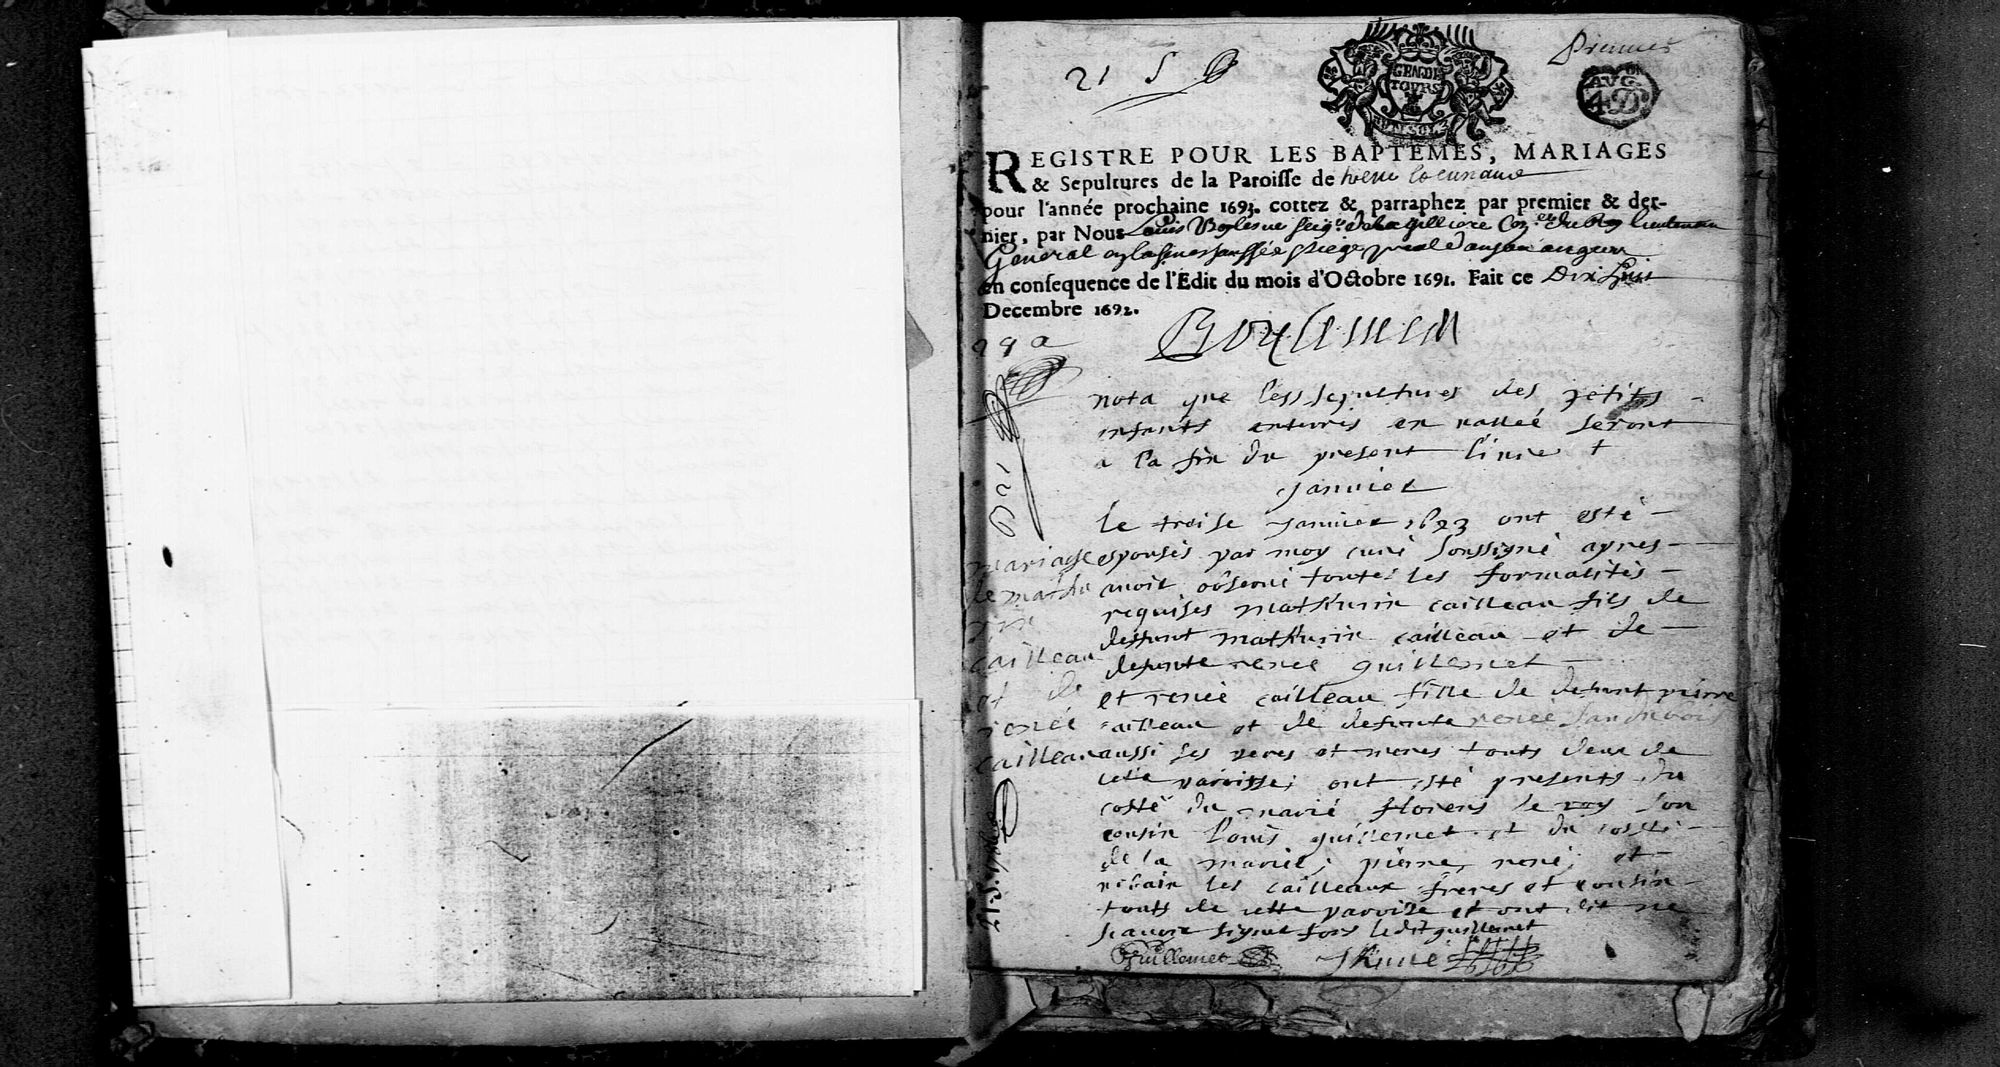 Premier
21 S
GEN DE
TOVRS
AVG
4 D
REGISTRE POUR LES BAPTEMES, MARIAGES
& Sepultures de la Paroisse de
pour l'année prochaine 1693. cottez & parraphez par premier & der-
nier, par Nous Louis Boylesue seigr. de la Gilliere Coner. du Roy Lieutenan
General en la siege
en consequence de l'Edit du mois d'Octobre 1691. Fait ce Dix huit
Decembre 1692.
Boylesue
nota que les sepultures des petits
enfants enterrés en vallée seront
a la fin du present liure +
januier
le troise januier 1693 ont esté
espousés par moy curé soussigné apres
auoir obserué toutes les formalités
requises mathurin cailleau fils de
deffunt mathurin cailleau et de
defunte renee guillemet
et renée cailleau fille de defunt pierre
cailleau et de defunte renée
aussi ses peres et meres touts deux de
cette paroisse; ont esté presents du
costé du marié florens le roy son
cousin louis guillemet et du costé
de la mariée; pierre, rené, et
urbain les cailleaux freres et cousin
touts de cette paroisse et ont dit ne
scauoir signer fors ledit guillemet
Guillemet
mariage
de mathu
rin
cailleau
et de
renée
cailleau